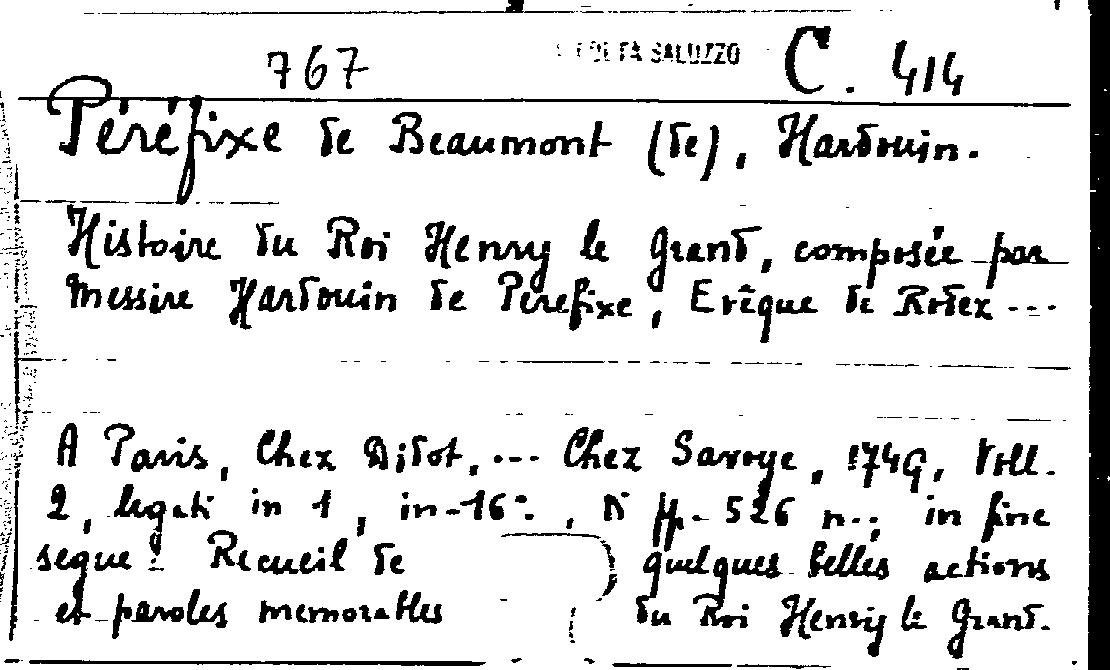 767 SALUZZO C. 414
Péréfixe de Beaumont (de), Hardouin.
Histoire du Roi Henry le Grand, composée par
Messire Hardouin de Perefixe, Evêque de Rodez ...
A Paris, Chez Didot, ... Chez Savoye, 1749, Voll.
2, legati in 1, in-16°., Di pp. 526 n.; in fine
segue: Recueil de quelques belles actions
et paroles memorables du Roi Henry le Grand.